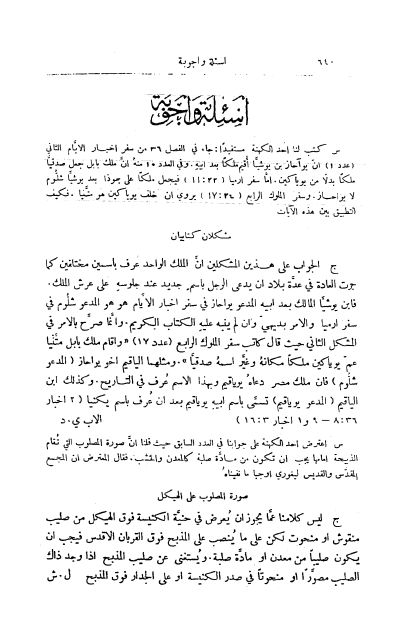 ٦٤٠ اسئلة واجوبة
اسئلة واجوبة
س كتب لنا احد الكهنة مستفيدًا: جاء في الفصل ٣٦ من سفر اخبار الايام الثاني
(عدد ١) ان يوآحاز بن يوشيا أقيم ملكًا بعد ابيه. وفي العدد ١٠ منه انَّ ملك بابل جعل صدقيا
ملكًا بدلًا من يوياكين. امَّا سفر ارميا (١١:٢٢) فيجعل ملكًا على يهوذا بعد يوشيا شلوم
لا يوآحاز. وسفر الملوك الرابع (١٧:٢٤) يروي ان خلف يوياكين هو متَّنيا. فكيف
التطبيق بين هذه الآيات
مشكلان كتابيان
ج الجواب على هذين المشكلين انَّ الملك الواحد عرف باسمين مختلفين كما
جرت العادة في عدَّة بلاد ان يدعى الرجل باسم جديد عند جلوسه على عرش الملك.
فابن يوشيَّا المالك بعد ابيه المدعو يوآحاز في سفر اخبار الأيام هو هو المدعو شلُّوم في
سفر ارميا والامر بديهي وان لم ينبه عليه الكتاب الكريم. وانَّما صرَّح بالامر في
المشكل الثاني حيث قال كاتب سفر الملوك الرابع (عدد ١٧) «واقام ملك بابل متَّنيا
عم يوياكين ملكًا مكانه وغيَّر اسمه صدقيَّا». ومثلهما الياقيم اخو يوآحاز (المدعو
شلُّوم) فان ملك مصر دعاه يوياقيم وبهذا الاسم عُرف في التاريخ. وكذلك ابن
الياقيم (المدعو يوياقيم) تسمَّى باسم ابيه يوياقيم بعد ان عُرف باسم يكنيا (٢ اخبار
٨:٣٦ – ٩ و١ اخبار ١٦:٣) الاب ي.د
س إعترض احد الكهنة على جوابنا في العدد السابق حيث قلنا انَّ صورة المصلوب التي تُقام
الذبيحة امامها يجب ان تكون من مادَّة صلبة كالمعدن والخشب. فقال المعترض ان المجمع
المقدَّس والقديس ليغوري اوجبا ما نفيناهُ
صورة المصلوب على الهيكل
ج ليس كلامنا عمَّا يجوز ان يُعرض في حنيَّة الكنيسة فوق الهيكل من صليب
منقوش او منحوت لكن على ما يُنصب على المذبح فوق القربان الاقدس فيجب ان
يكون صليبًا من معدن او مادَّة صلبة. ويُستغنى عن صليب المذبح اذا وجد ذاك
الصليب مصوَّرًا او منحوتًا في صدر الكنيسة او على الجدار فوق المذبح ل.ش